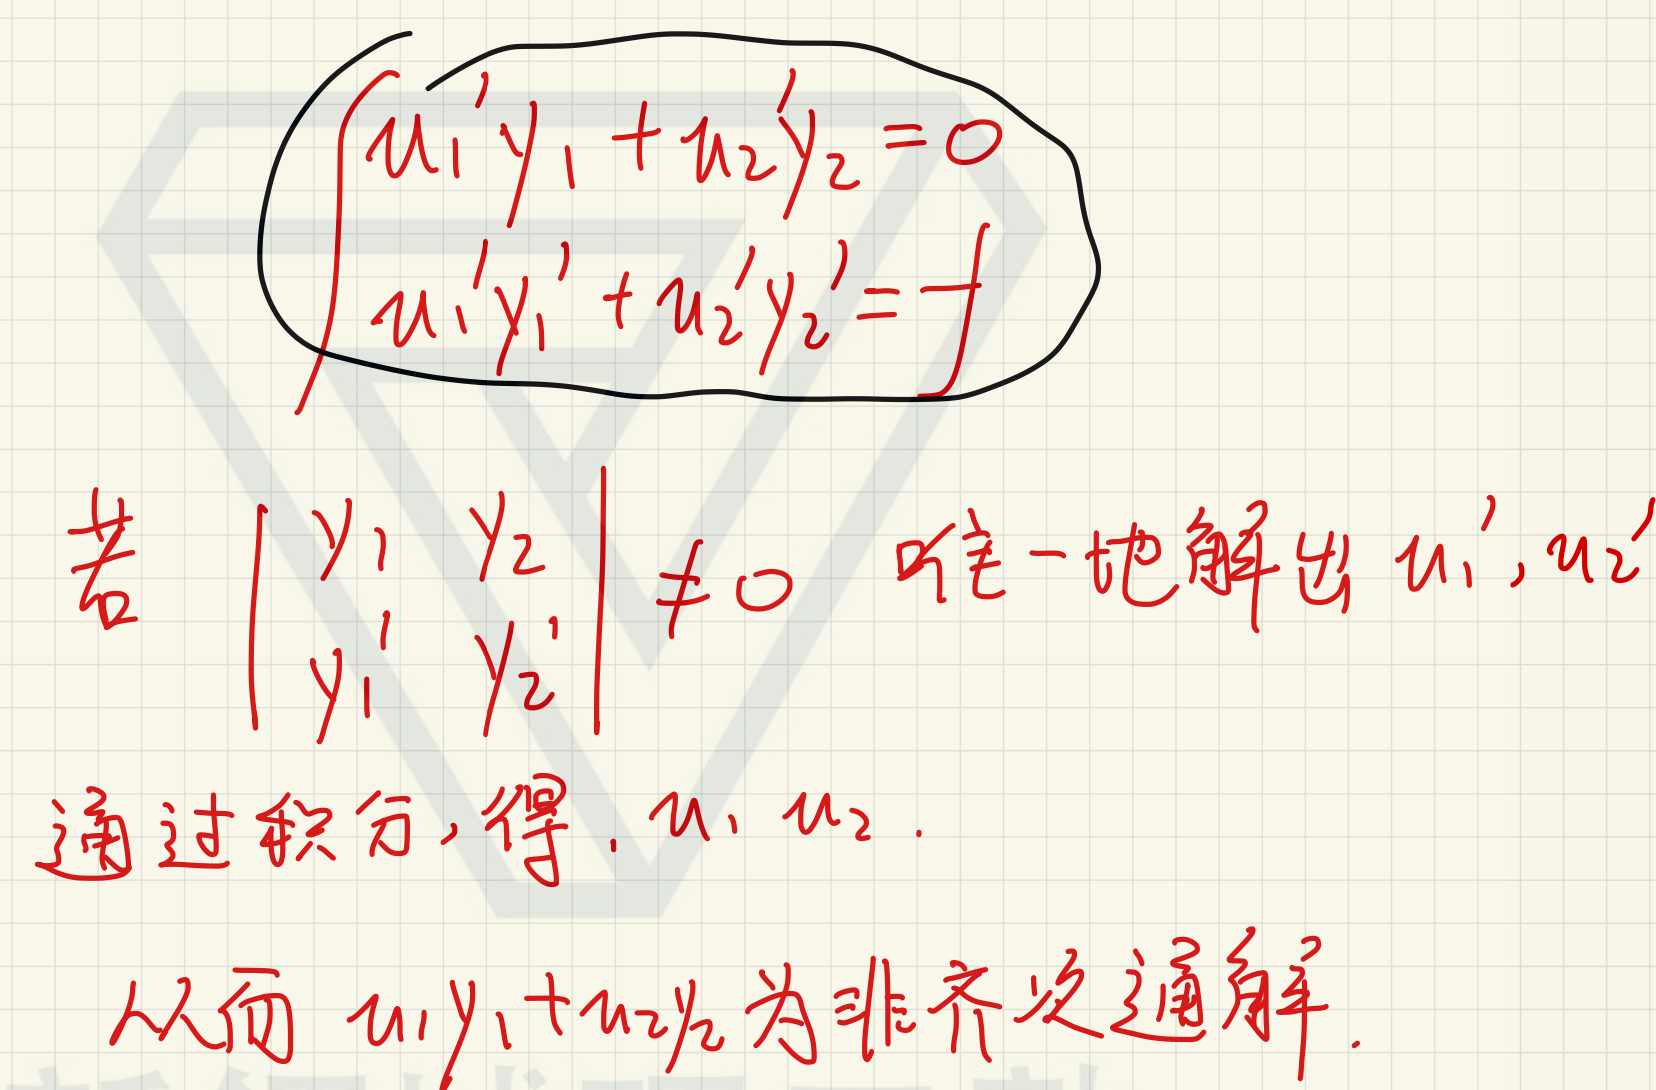 u₁'y₁ + u₂'y₂ = 0
u₁'y₁' + u₂'y₂' = f
若 | y₁ y₂ | ≠ 0 唯一地解出 u₁', u₂'
| y₁' y₂' |
通过积分,得. u₁ u₂.
从而 u₁y₁+u₂y₂ 为非齐次通解.